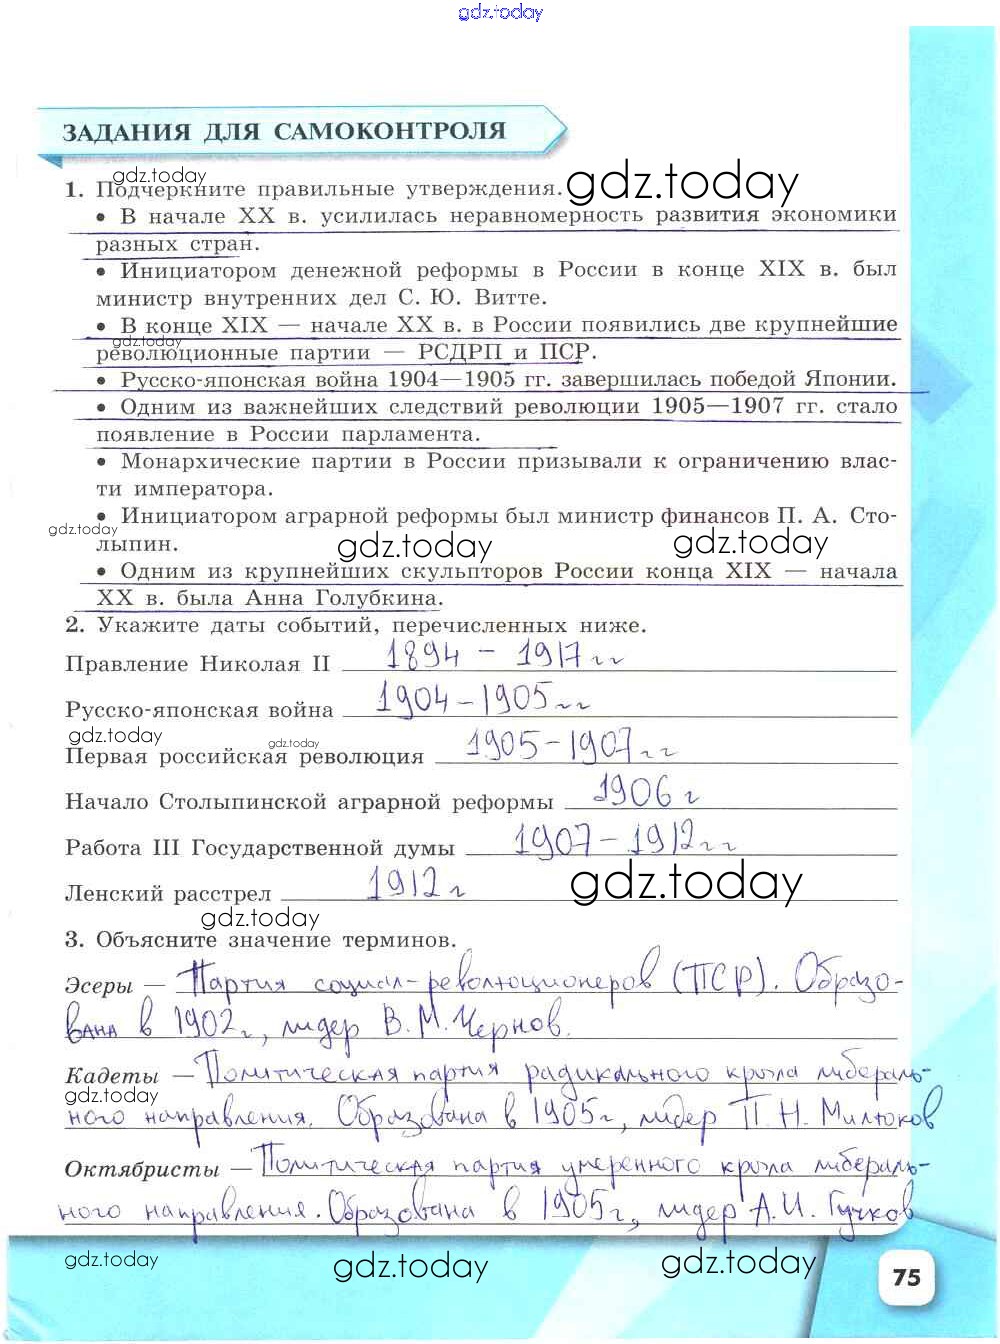 gdz.today
ЗАДАНИЯ ДЛЯ САМОКОНТРОЛЯ
gdz.today
gdz.today
1. Подчеркните правильные утверждения.
• В начале XX в. усилилась неравномерность развития экономики
разных стран.
• Инициатором денежной реформы в России в конце XIX в. был
министр внутренних дел С. Ю. Витте.
• В конце XIX — начале XX в. в России появились две крупнейшие
gdz.today
революционные партии — РСДРП и ПСР.
• Русско-японская война 1904—1905 гг. завершилась победой Японии.
• Одним из важнейших следствий революции 1905—1907 гг. стало
появление в России парламента.
• Монархические партии в России призывали к ограничению влас-
ти императора.
• Инициатором аграрной реформы был министр финансов П. А. Сто-
gdz.today
лыпин.
gdz.today
gdz.today
• Одним из крупнейших скульпторов России конца XIX — начала
XX в. была Анна Голубкина.
2. Укажите даты событий, перечисленных ниже.
Правление Николая II 1894 - 1917гг
Русско-японская война 1904-1905гг
gdz.today
gdz.today
Первая российская революция 1905-1907гг
Начало Столыпинской аграрной реформы 1906 г
Работа III Государственной думы 1907-1912гг
Ленский расстрел 1912г
gdz.today
gdz.today
3. Объясните значение терминов.
Эсеры — Партия социал-революционеров (ПСР). Образо-
вана в 1902г, лидер В.М.Чернов.
Кадеты — Политическая партия радикального крыла либераль-
gdz.today
ного направления. Образована в 1905г, лидер П.Н.Милюков
Октябристы — Политическая партия умеренного крыла либераль-
ного направления. Образована в 1905г, лидер А.И.Гучков
gdz.today
gdz.today
gdz.today
75